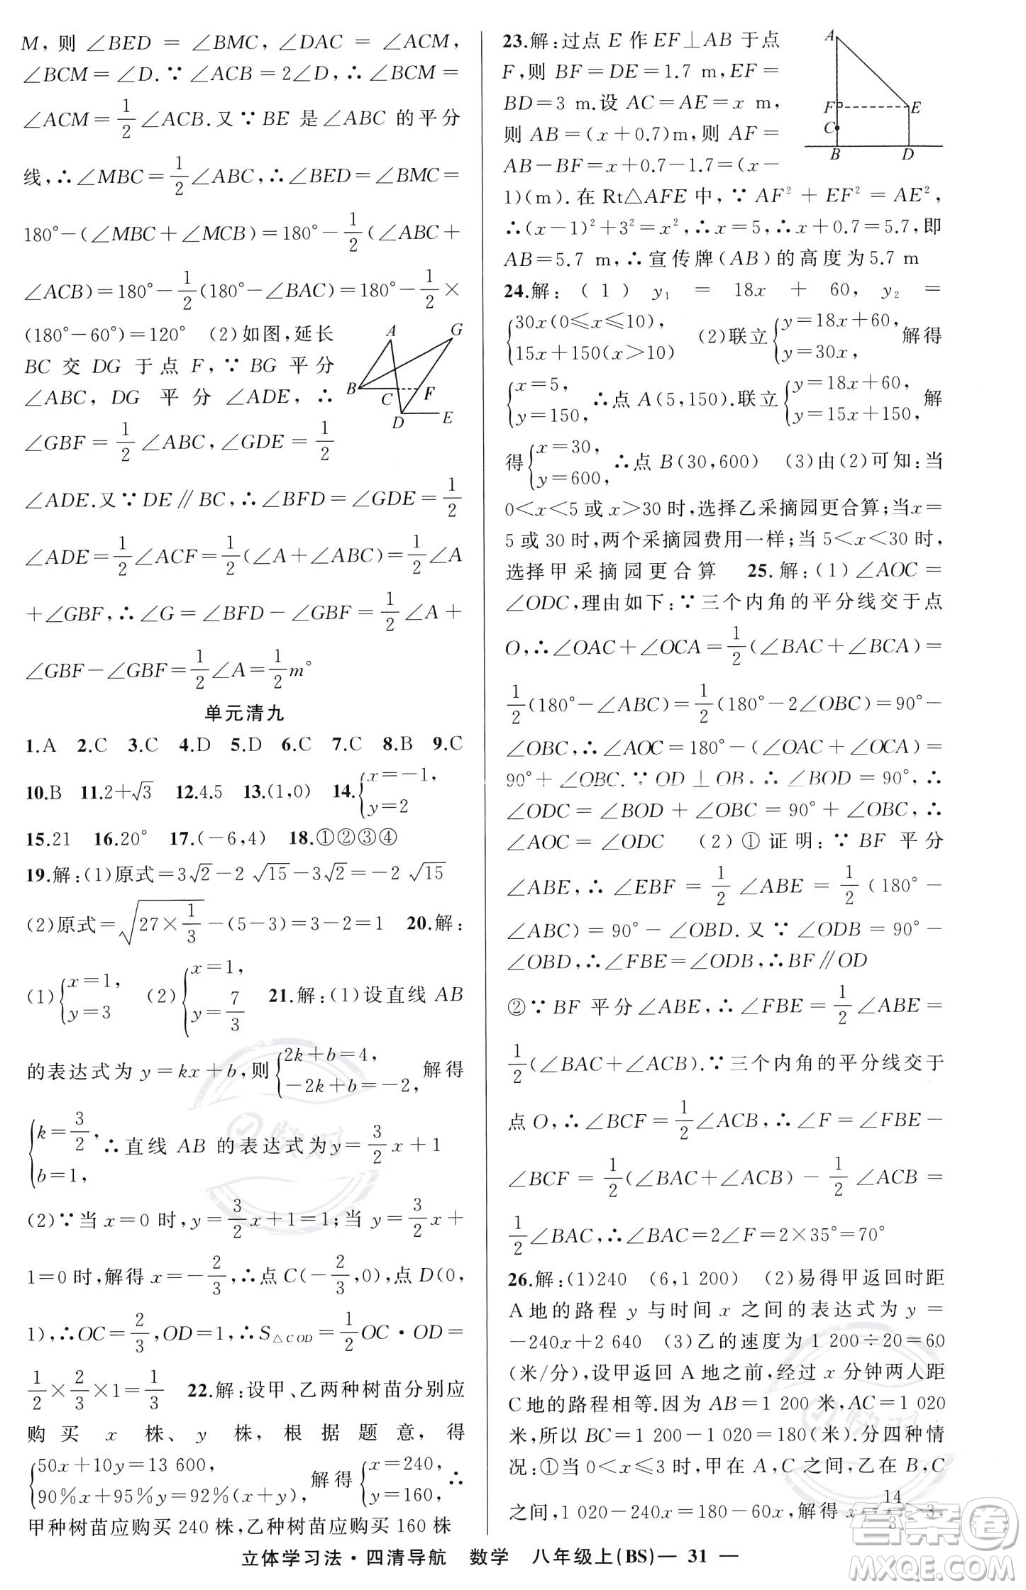 M,则∠BED=∠BMC,∠DAC=∠ACM,
∠BCM=∠D.∵∠ACB=2∠D,∴
∠ACM=1/2∠ACB.又∵BE是∠ABC的平分
线,∴∠MBC=1/2∠ABC,∴∠BED=∠BMC=
180°-(∠MBC+∠MCB)=180°-1/2(∠ABC+
∠ACB)=180°-1/2(180°-∠BAC)=180°-1/2×
(180°-60°)=120° (2)如图,延长
BC交DG于点F,∵BG平分
∠ABC,DG平分∠ADE,∴
∠GBF=1/2∠ABC,∠GDE=1/2
∠ADE.又∵DE∥BC,∴∠BFD=∠GDE=1/2
∠ADE=1/2∠ACF=1/2(∠A+∠ABC)=1/2∠A
+∠GBF,∴∠G=∠BFD-∠GBF=1/2∠A+
∠GBF-∠GBF=1/2∠A=1/2m°
A G B C F D E
单元清九
1.A 2.C 3.C 4.D 5.D 6.C 7.C 8.B 9.C
10.B 11.2+√3 12.4.5 13.(1,0) 14.{x=-1, y=2
15.21 16.20° 17.(-6,4) 18.①②③④
19.解:(1)原式=3√2-2√15-3√2=-2√15
(2)原式=√(27×1/3)-(5-3)=3-2=1 20.解:
(1){x=1, y=3 (2){x=1, y=7/3 21.解:(1)设直线AB
的表达式为y=kx+b,则{2k+b=4, -2k+b=-2,解得
{k=3/2, b=1, ∴直线AB的表达式为y=3/2x+1
(2)∵当x=0时,y=3/2x+1=1;当3/2x+
1=0时,解得x=-2/3,∴点C(-2/3,0),点D(0,
1),∴OC=2/3,OD=1,∴S△COD=1/2OC·OD=
1/2×2/3×1=1/3 22.解:设甲、乙两种树苗分别应
购买x株、y株,根据题意,得
{50x+10y=13 600, 90%x+95%y=92%(x+y),解得{x=240, y=160 ∴
甲种树苗应购买240株,乙种树苗应购买160株
23.解:过点E作EF⊥AB于点
F,则BF=DE=1.7 m,EF=
BD=3 m.设AC=AE=x m,
则AB=(x+0.7)m,则AF=
AB-BF=x+0.7-1.7=(x-
1)(m).在Rt△AFE中,∵AF²+EF²=AE²,
∴(x-1)²+3²=x²,∴x=5,∴x+0.7=5.7,即
AB=5.7 m,∴宣传牌(AB)的高度为5.7 m
A F E C B D
24.解:(1)y₁=18x+60,y₂=
{30x(0≤x≤10), 15x+150(x>10) (2)联立{y=18x+60, y=30x,解得
{x=5, y=150, ∴点A(5,150).联立{y=18x+60, y=15x+150,解
得{x=30, y=600, ∴点B(30,600) (3)由(2)可知:当
0<x<5或x>30时,选择乙采摘园更合算;当x=
5或30时,两个采摘园费用一样;当5<x<30时,
选择甲采摘园更合算 25.解:(1)∠AOC=
∠ODC,理由如下:∵三个内角的平分线交于点
O,∴∠OAC+∠OCA=1/2(∠BAC+∠BCA)=
1/2(180°-∠ABC)=1/2(180°-2∠OBC)=90°-
∠OBC,∴∠AOC=180°-(∠OAC+∠OCA)=
90°+∠OBC.∵OD⊥OB,∴∠BOD=90°,∴
∠ODC=∠BOD+∠OBC=90°+∠OBC,∴
∠AOC=∠ODC (2)①证明:∵BF平分
∠ABE,∴∠EBF=1/2∠ABE=1/2(180°-
∠ABC)=90°-∠OBD.又∵∠ODB=90°-
∠OBD,∴∠FBE=∠ODB,∴BF∥OD
②∵BF平分∠ABE,∴∠FBE=1/2∠ABE=
1/2(∠BAC+∠ACB).∵三个内角的平分线交于
点O,∴∠BCF=1/2∠ACB,∴∠F=∠FBE-
∠BCF=1/2(∠BAC+∠ACB)-1/2∠ACB=
1/2∠BAC,∴∠BAC=2∠F=2×35°=70°
26.解:(1)240 (6,1 200) (2)易得甲返回时距
A地的路程y与时间x之间的表达式为y=
-240x+2 640 (3)乙的速度为1 200÷20=60
(米/分),设甲返回A地之前,经过x分钟两人距
C地的路程相等.因为AB=1 200米,AC=1 020
米,所以BC=1 200-1 020=180(米).分四种情
况:①当0<x≤3时,甲在A,C之间,乙在B,C
之间,1 020-240x=180-60x,解得x=14/3>3,
立体学习法·四清导航 数学 八年级上(BS)— 31 —
答案圈